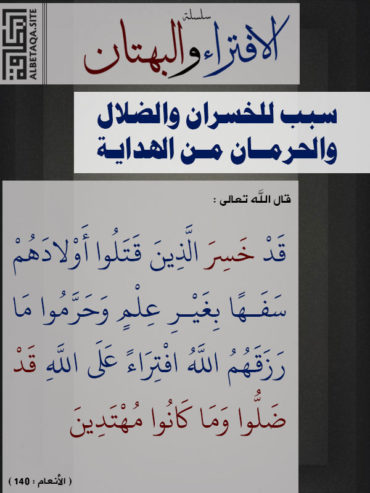 البطاقة
ALBETAQA.SITE
سلسلة
الافتراء والبهتان
سبب للخسران والضلال
والحرمان من الهداية
قال الله تعالى :
قَدْ خَسِرَ الَّذِينَ قَتَلُوا أَوْلَادَهُمْ
سَفَهًا بِغَيْرِ عِلْمٍ وَحَرَّمُوا مَا
رَزَقَهُمُ اللَّهُ افْتِرَاءً عَلَى اللَّهِ قَدْ
ضَلُّوا وَمَا كَانُوا مُهْتَدِينَ
( الأنعام : 140 )